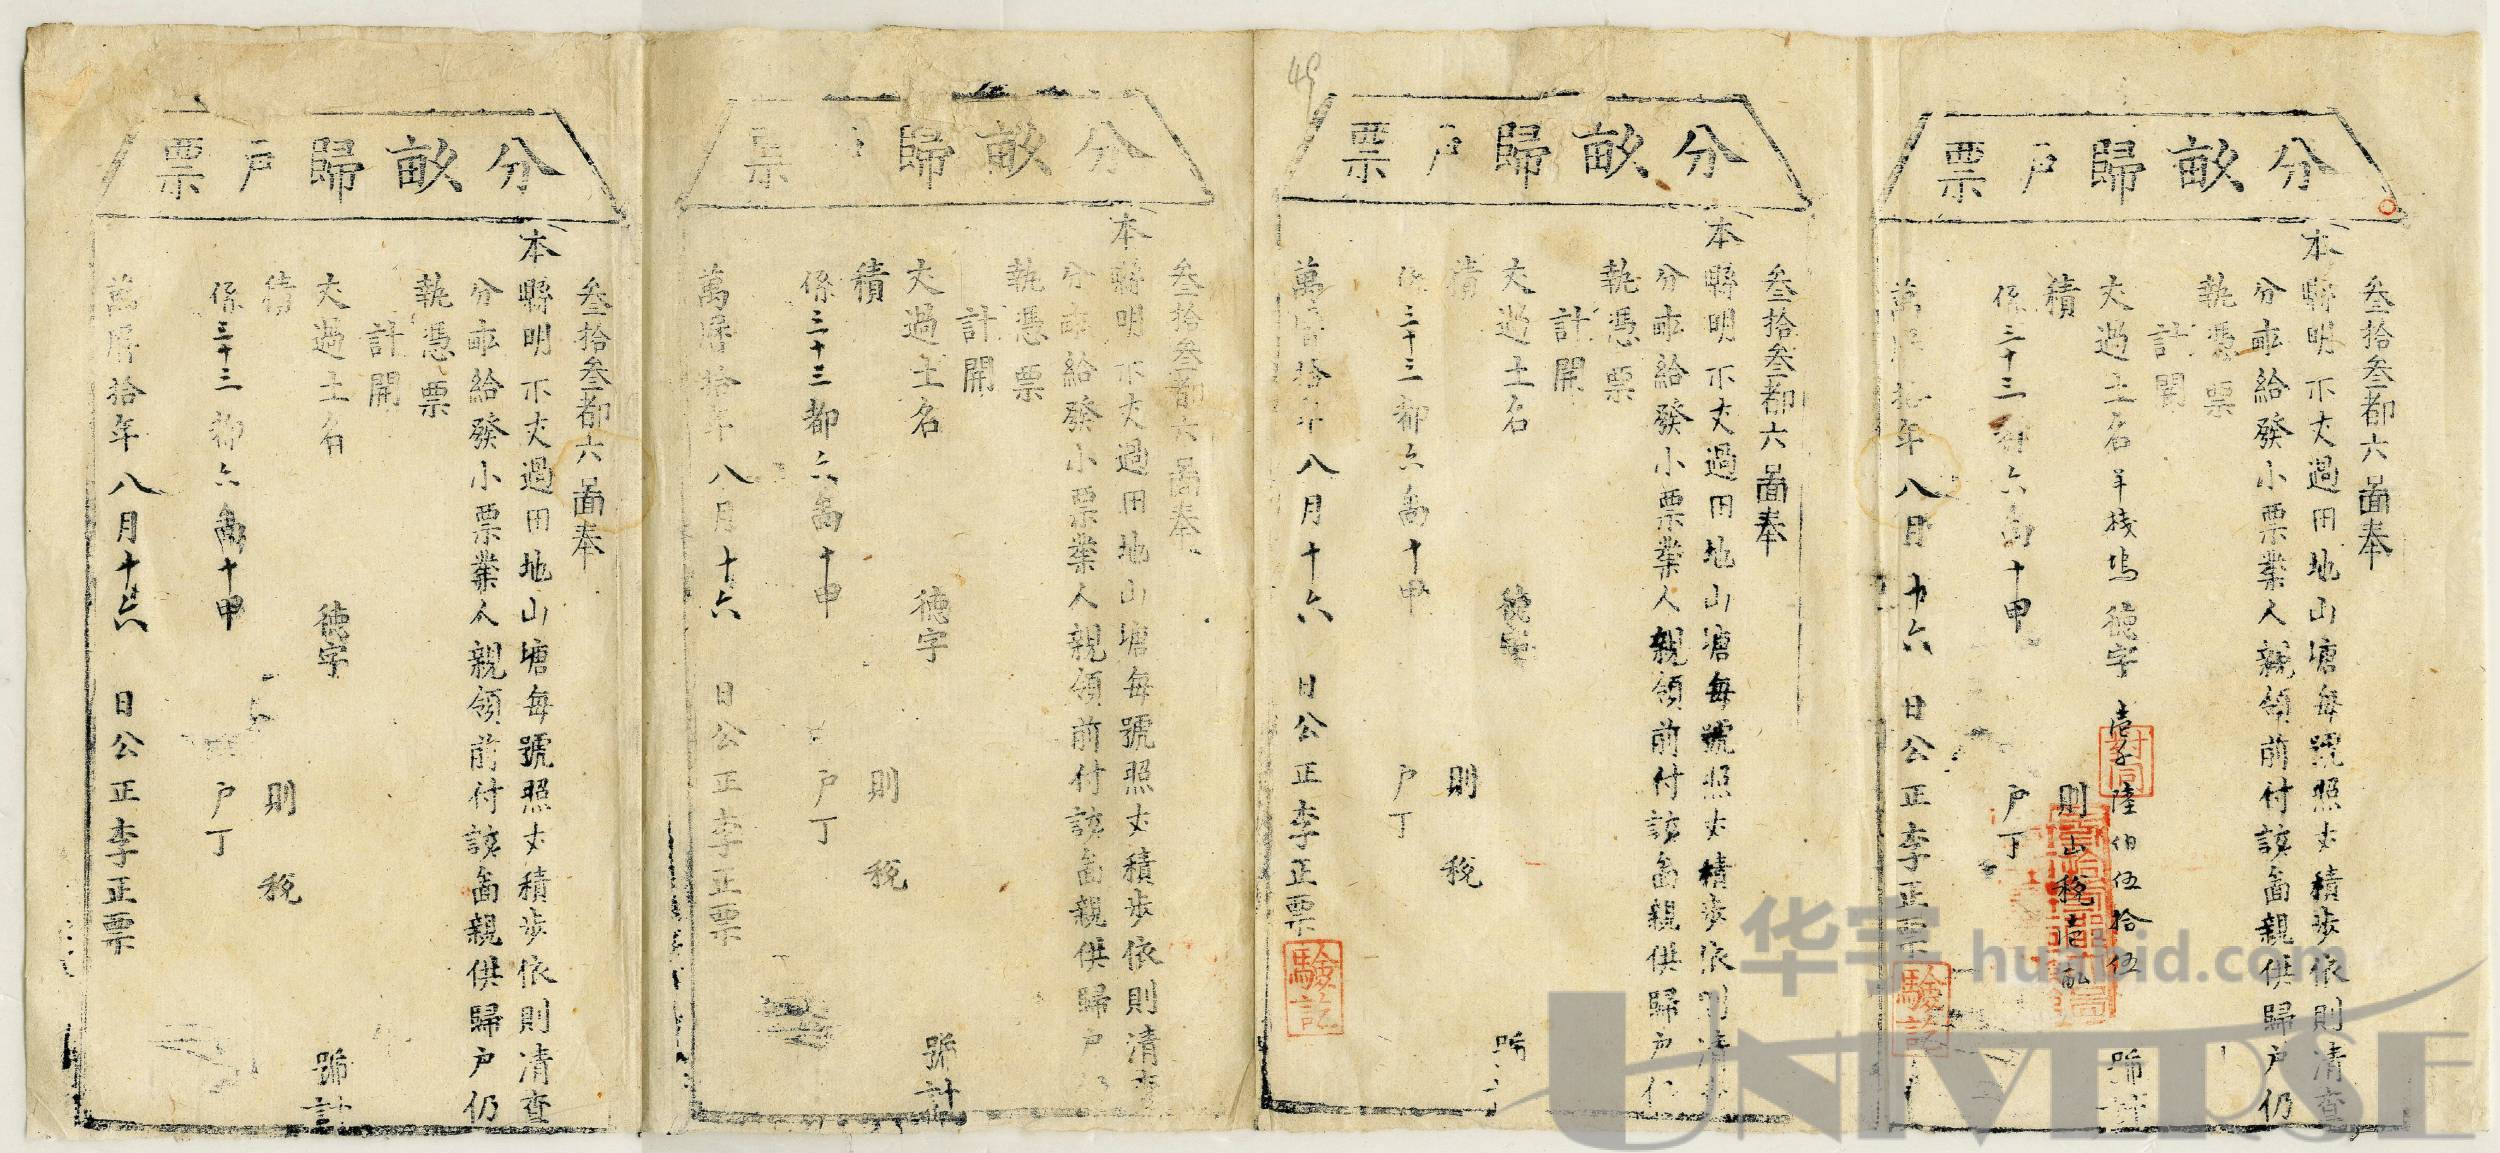 分畝歸户票
叁拾叁都六啚奉
本縣明示丈過田地山塘每號照丈積步依則清查
分畝給發小票業人親領前付該啚親供歸户仍
執憑票
計開
丈過土名羊棧塢 德字壹千陸伯伍拾伍號計
積 則山稅壹畝
係三十三都六啚十甲 户丁
萬曆拾年八月十六日公正李正票
對同
驗訖
49
分畝歸户票
叁拾叁都六啚奉
本縣明示丈過田地山塘每號照丈積步依則清查
分畝給發小票業人親領前付該啚親供歸户仍
執憑票
計開
丈過土名 德字 號計
積 則 稅
係三十三都六啚十甲 户丁
萬曆拾年八月十六日公正李正票
驗訖
分畝歸户票
叁拾叁都六啚奉
本縣明示丈過田地山塘每號照丈積步依則清查
分畝給發小票業人親領前付該啚親供歸户仍
執憑票
計開
丈過土名 德字 號計
積 則 稅
係三十三都六啚十甲 户丁
萬曆拾年八月十六日公正李正票
分畝歸户票
叁拾叁都六啚奉
本縣明示丈過田地山塘每號照丈積步依則清查
分畝給發小票業人親領前付該啚親供歸户仍
執憑票
計開
丈過土名 德字 號計
積 則 稅
係三十三都六啚十甲 户丁
萬曆拾年八月十六日公正李正票
华宇 huabid.com
UNIVERSE